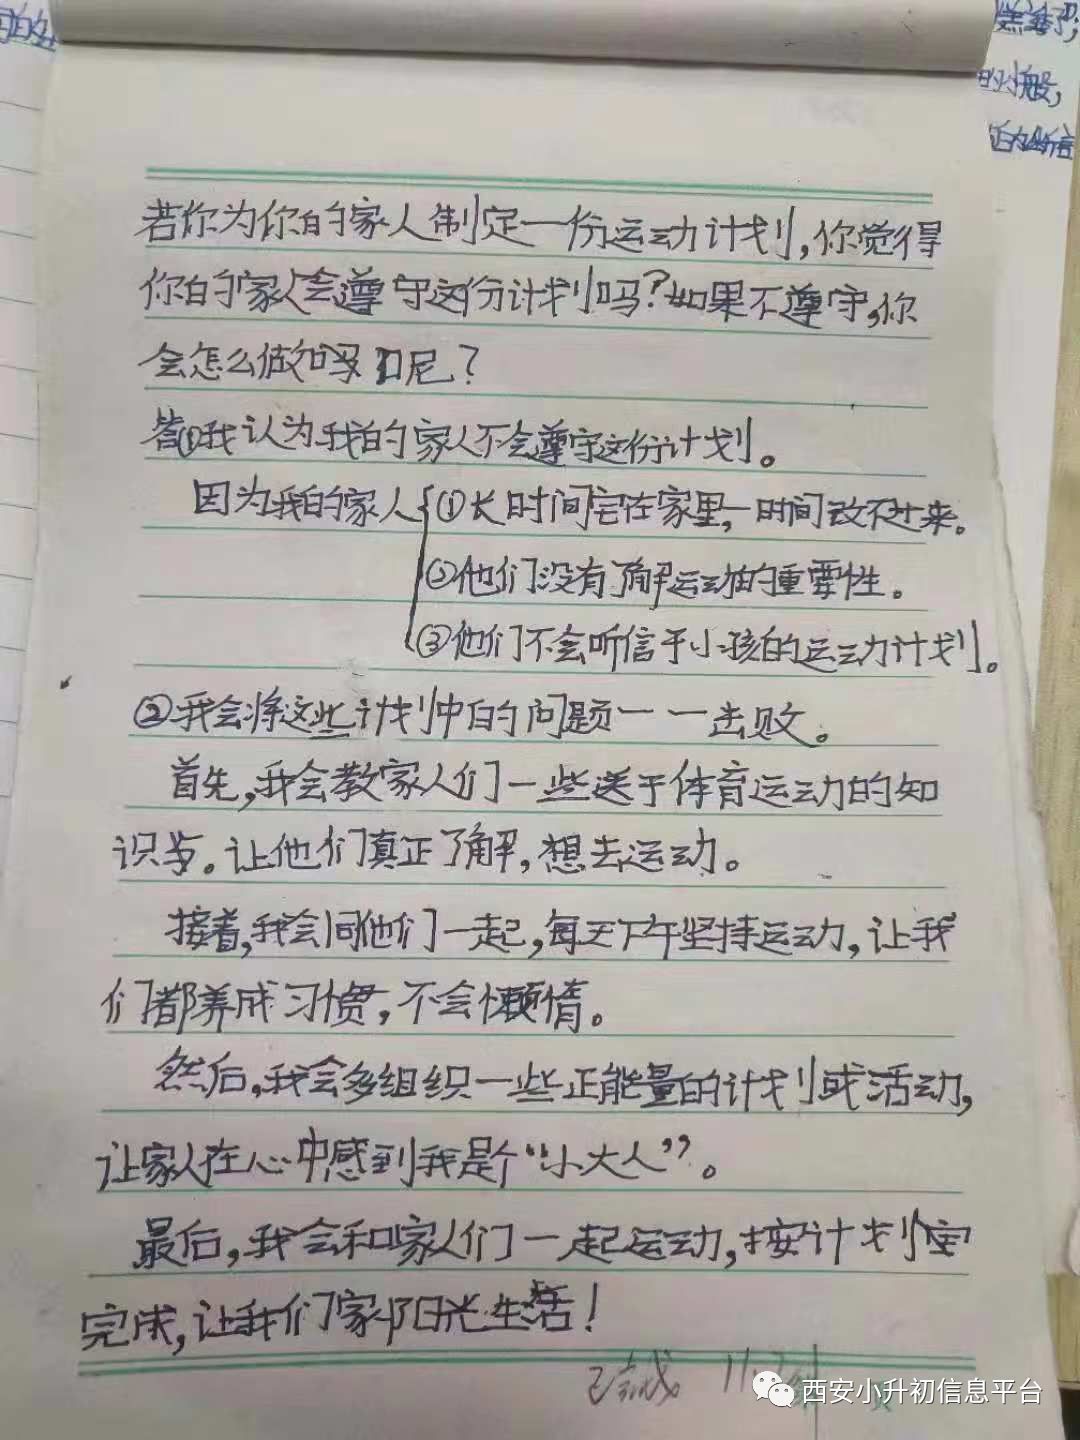 若你为你的家人制定一份运动计划,你觉得
你的家人会遵守这份计划吗?如果不遵守,你
会怎么做呢?
答①我认为我的家人不会遵守这份计划。
因为我的家人{①长时间宅在家里,一时间改不过来。
②他们没有了解运动的重要性。
③他们不会听信于小孩的运动计划。
②我会将这些计划中的问题一一击败。
首先,我会教家人们一些关于体育运动的知
识与。让他们真正了解,想去运动。
接着,我会同他们一起,每天下午坚持运动,让我
们都养成习惯,不会懒惰。
然后,我会多组织一些正能量的计划或活动,
让家人在心中感到我是个“小大人”。
最后,我会和家人们一起运动,按计划
完成,让我们家阳光生活!
西安小升初信息平台